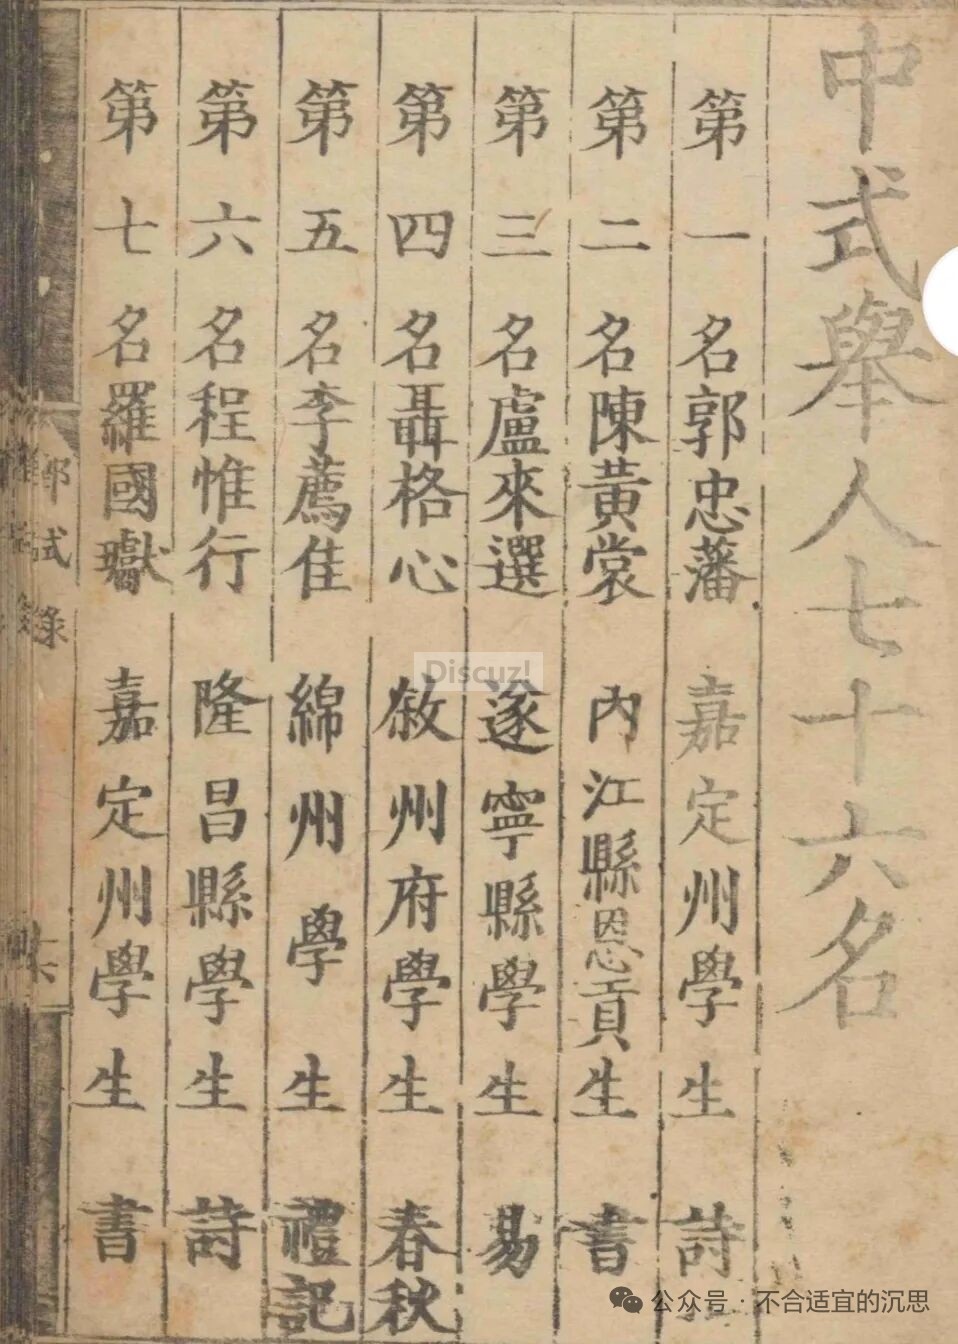 中式舉人七十六名
第一名郭忠藩 嘉定州學生 詩
第二名陳黃裳 內江縣恩貢生 書
第三名盧來選 遂寧縣學生 易
第四名聶格心 敘州府學生 春秋
第五名李薦佳 綿州學生 禮記
第六名程惟行 隆昌縣學生 詩
第七名羅國瓛 嘉定州學生 書
鄉試錄
Discuz!
公众号 · 不合适宜的沉思